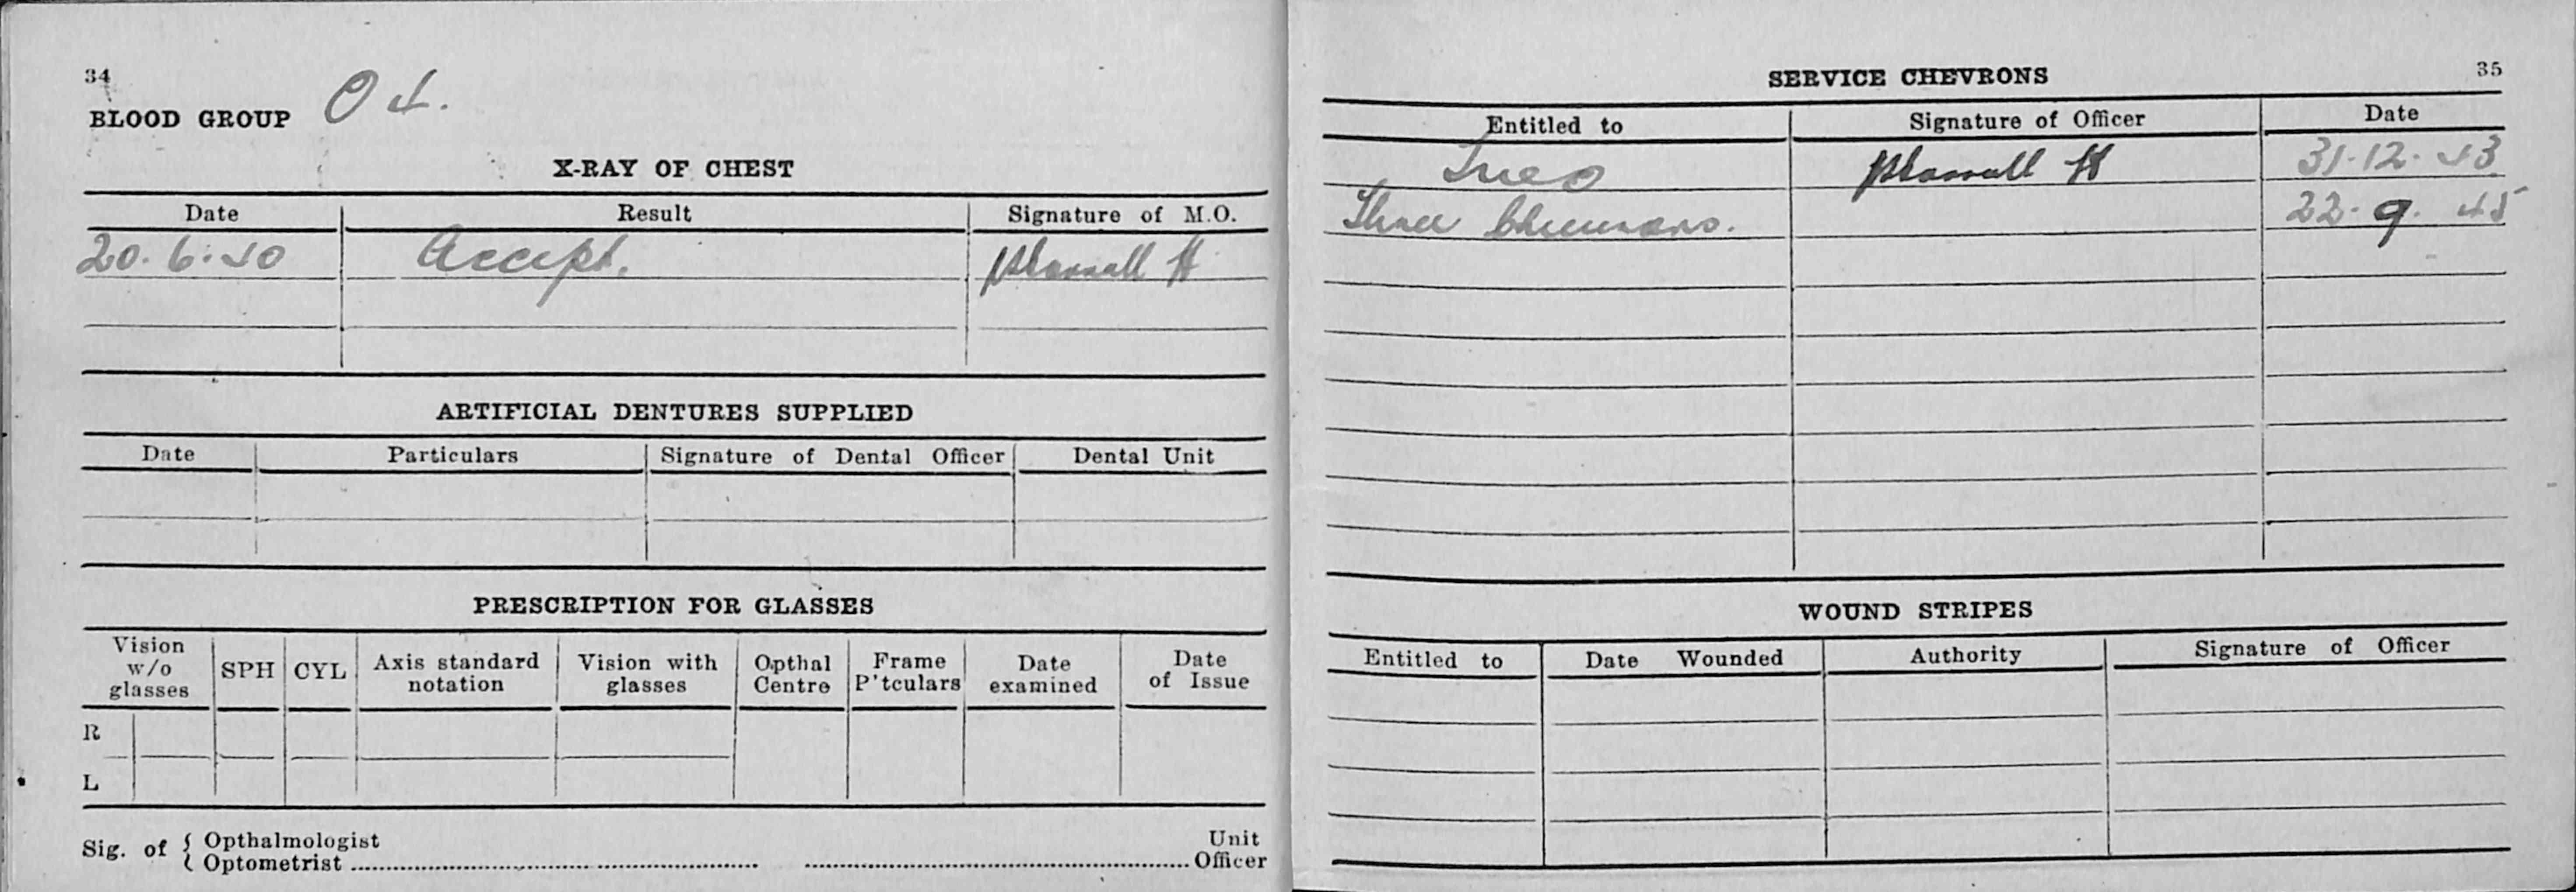 34
BLOOD GROUP O 4.
X-RAY OF CHEST
Date Result Signature of M.O.
20.6.40 Accept.
ARTIFICIAL DENTURES SUPPLIED
Date Particulars Signature of Dental Officer Dental Unit
PRESCRIPTION FOR GLASSES
Vision w/o glasses SPH CYL Axis standard notation Vision with glasses Opthal Centre Frame P'tculars Date examined Date of Issue
R
L
Sig. of { Opthalmologist Unit
Optometrist Officer
35
SERVICE CHEVRONS
Entitled to Signature of Officer Date
31.12.43
Three Chevrons. 22.9.45
WOUND STRIPES
Entitled to Date Wounded Authority Signature of Officer